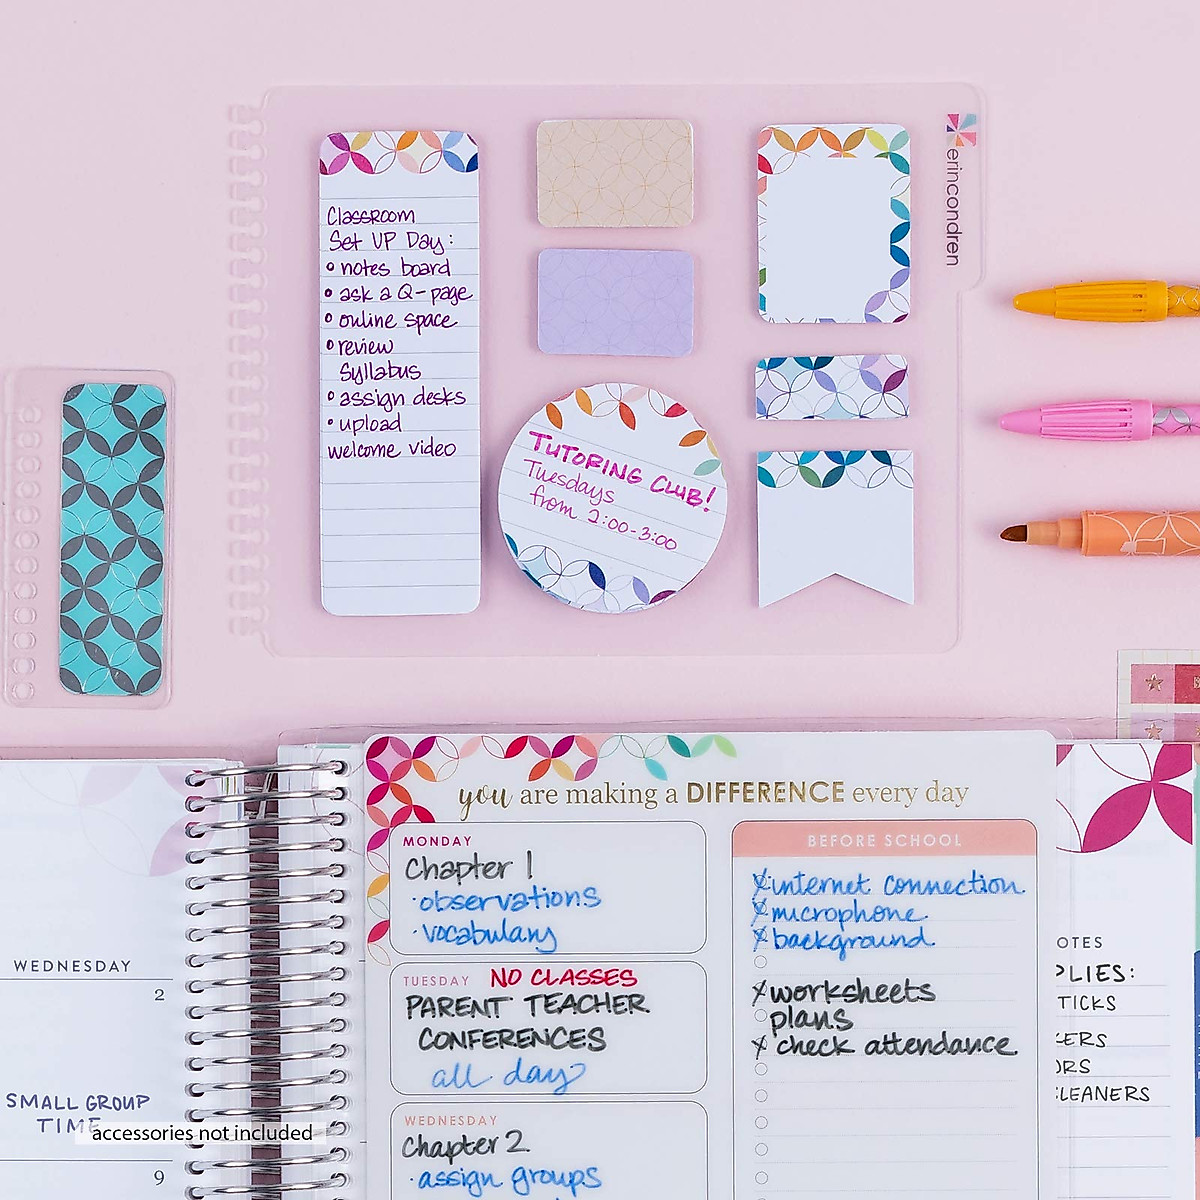 Classroom
Set UP Day:
• notes board
• ask a Q-page
• online space
• review
Syllabus
• assign desks
• upload
welcome video
TUTORING CLUB!
Tuesdays
from 2:00-3:00
erincondren
WEDNESDAY
2
SMALL GROUP
TIME
9
accessories not included
you are making a DIFFERENCE every day
MONDAY
Chapter 1
·observations
·vocabulary
TUESDAY NO CLASSES
PARENT TEACHER
CONFERENCES
all day
WEDNESDAY
Chapter 2
·assign groups
BEFORE SCHOOL
internet connection
microphone
background
worksheets
plans
check attendance
OTES
PLIES:
TICKS
KERS
ORS
CLEANERS